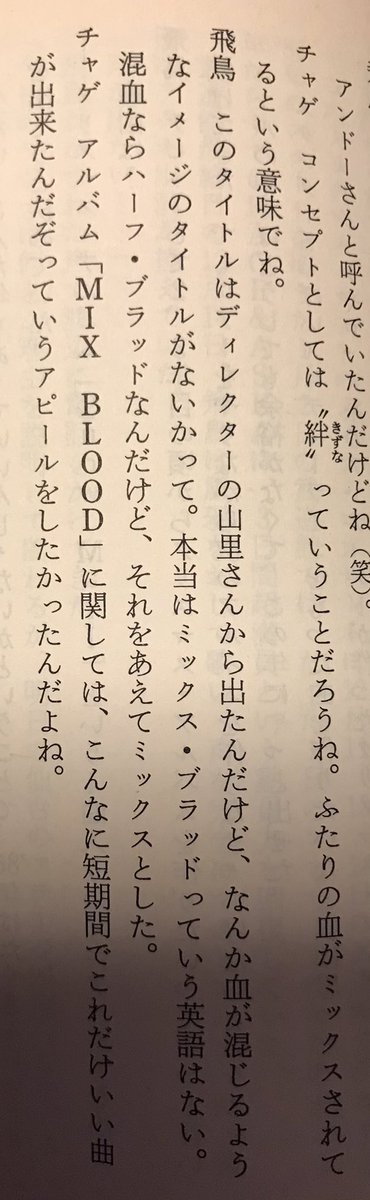 アンドーさんと呼んでいたんだけどね（笑）。
チャゲ　コンセプトとしては〝絆〟っていうことだろうね。ふたりの血がミックスされて
きずな
るという意味でね。
飛鳥　このタイトルはディレクターの山里さんから出たんだけど、なんか血が混じるよう
なイメージのタイトルがないかって。本当はミックス・ブラッドっていう英語はない。
混血ならハーフ・ブラッドなんだけど、それをあえてミックスとした。
チャゲ　アルバム「MIX BLOOD」に関しては、こんなに短期間でこれだけいい曲
が出来たんだぞっていうアピールをしたかったんだよね。